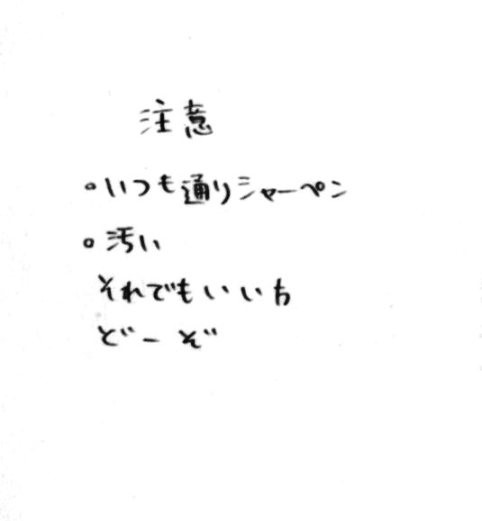 注意
。いつも通りシャーペン
。汚い
それでもいい方
どーぞ